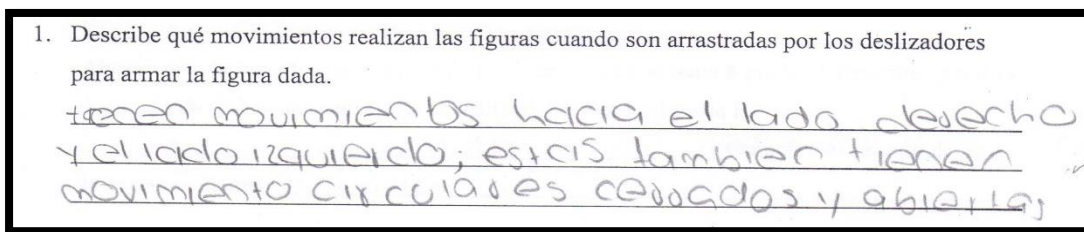 1. Describe qué movimientos realizan las figuras cuando son arrastradas por los deslizadores
para armar la figura dada.
tienen movimientos hacia el lado derecho
y el lado izquierdo; estas tambien tienen
movimiento circulares cerrados y abiertas